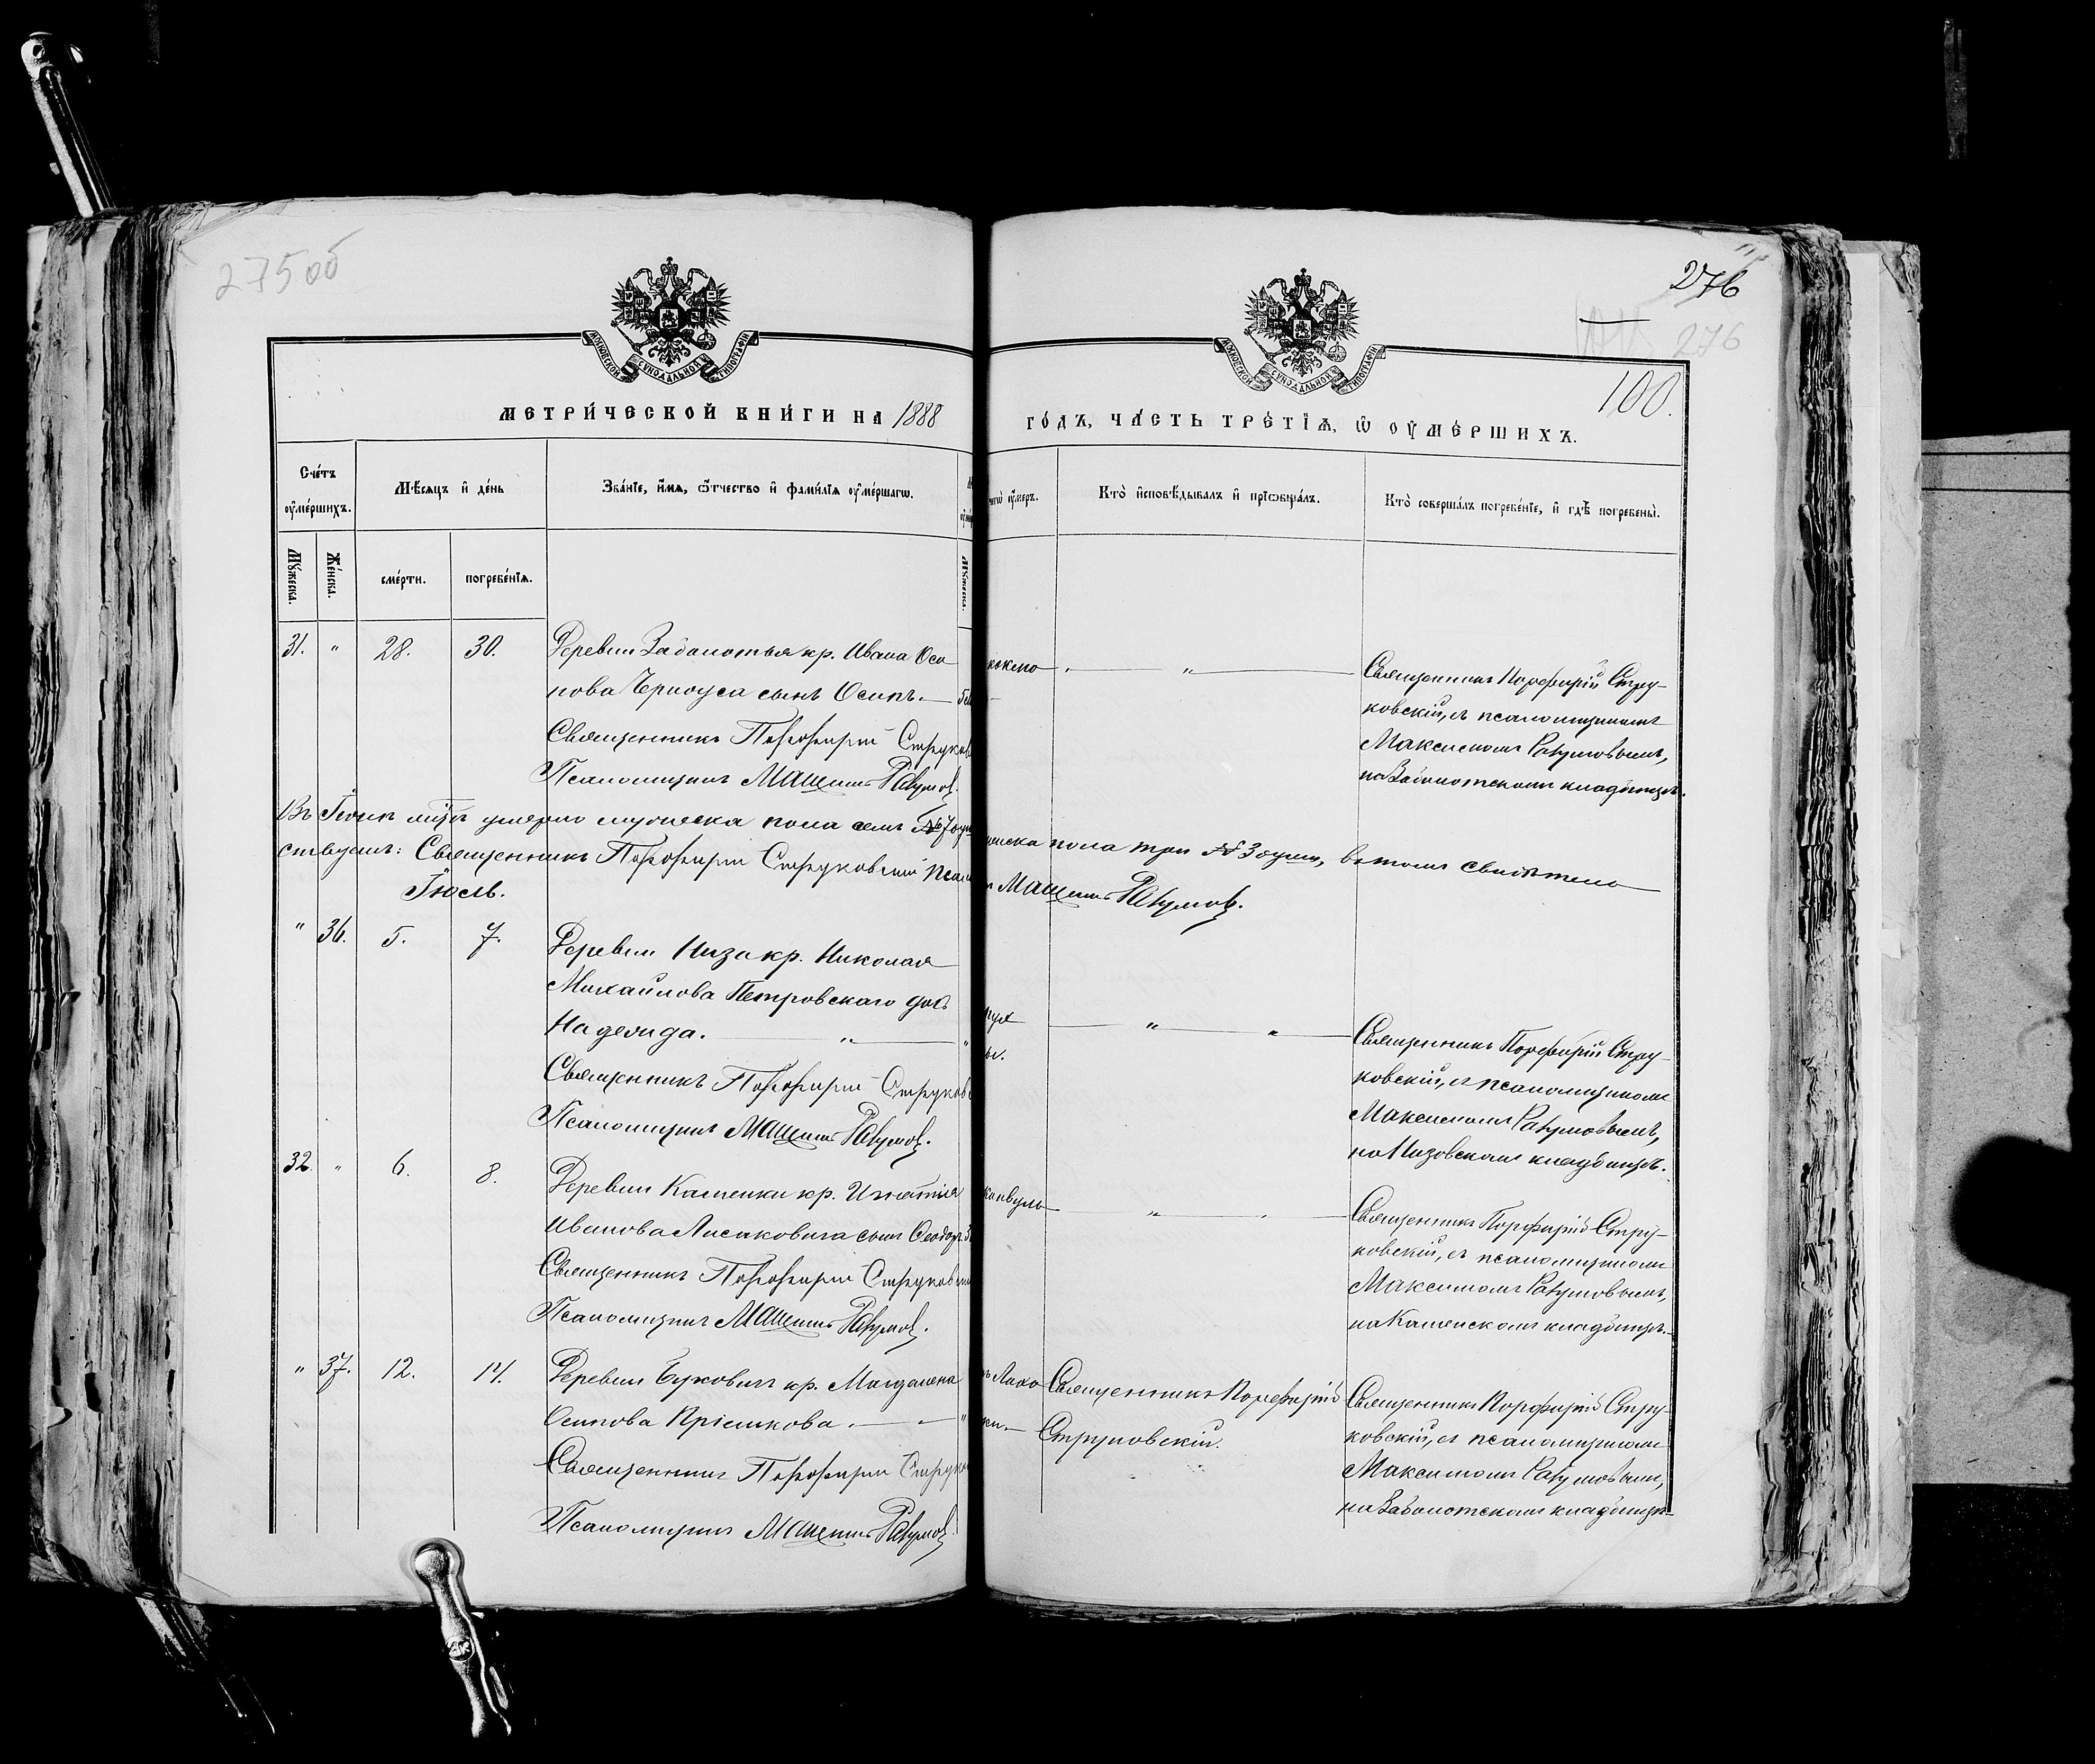 275 об
276
276
100.
МОСКОВСКОЙ СѴНОДАЛЬНОЙ ТИПОГРАФІИ
МОСКОВСКОЙ СѴНОДАЛЬНОЙ ТИПОГРАФІИ
МЕТРИ́ЧЕСКОЙ КНИ́ГИ НА 1888
ГО́ДЪ, ЧА́СТЬ ТРЕ́ТЇѦ, Ѡ҆ ОУ҆МЕ́РШИХЪ.
Сче́тъ оу҆ме́ршихъ.
Мѣ́сяцъ и҆ де́нь
Зва́нїе, и҆́мѧ, ѻ҆́тчество и҆ фами́лїѧ оу҆ме́ршагѡ.
Му́жеска.
Же́нска.
сме́рти.
погребе́нїѧ.
Му́жеска.
чегѡ̀ оу҆́меръ.
Кто̀ и҆сповѣ́дывалъ и҆ прїѡбща́лъ.
Кто̀ соверша́лъ погребе́нїе, и҆ гдѣ̀ погребены̀.
31. " 28. 30. Деревни Заболотья кр. Ивана Оси
пова Черноуса сынъ Осипъ.
Священникъ Порфирій Струков
Псаломщикъ Максимъ Разумов.
Священникъ Порфирій Стру-
ковскій, съ псаломщикомъ
Максимомъ Разумовымъ,
на Заболотскомъ кладбищѣ.
Въ Іюнѣ мцѣ умерло мужеска пола семь № 7 душ
женска пола три № 3 души, въ томъ свидѣтель
ствуемъ: Священникъ Порфирій Струковский Псал
Максимъ Разумов.
Іюль.
" 36. 5. 7. Деревни Низа кр. Николая
Михайлова Петровскаго дочь
Надежда.
Священникъ Порфирій Струков
Псаломщикъ Максимъ Разумов.
Священникъ Порфирій Стру-
ковскій, съ псаломщикомъ
Максимомъ Разумовымъ,
на Низовскомъ кладбищѣ.
32. " 6. 8. Деревни Каменки кр. Игнатія
Иванова Лисаковича сынъ Ѳеодоръ
Священникъ Порфирій Струковский
Псаломщикъ Максимъ Разумов.
конвуль
Священникъ Порфирій Стру-
ковскій, съ псаломщикомъ
Максимомъ Разумовымъ,
на Каменскомъ кладбищѣ.
" 37. 12. 14. Деревни Буковичъ кр. Магдалена
Осипова Пріемкова.
Священникъ Порфирій Струков
Псаломщикъ Максимъ Разумов
Священникъ Порфирій
Струковскій.
Священникъ Порфирій Стру-
ковскій, съ псаломщикомъ
Максимомъ Разумовымъ,
на Заболотскомъ кладбищѣ